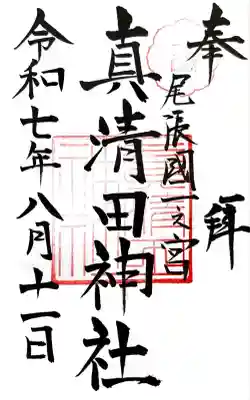 奉拜
尾張國一之宮
真清田神社
令和七年八月十一日